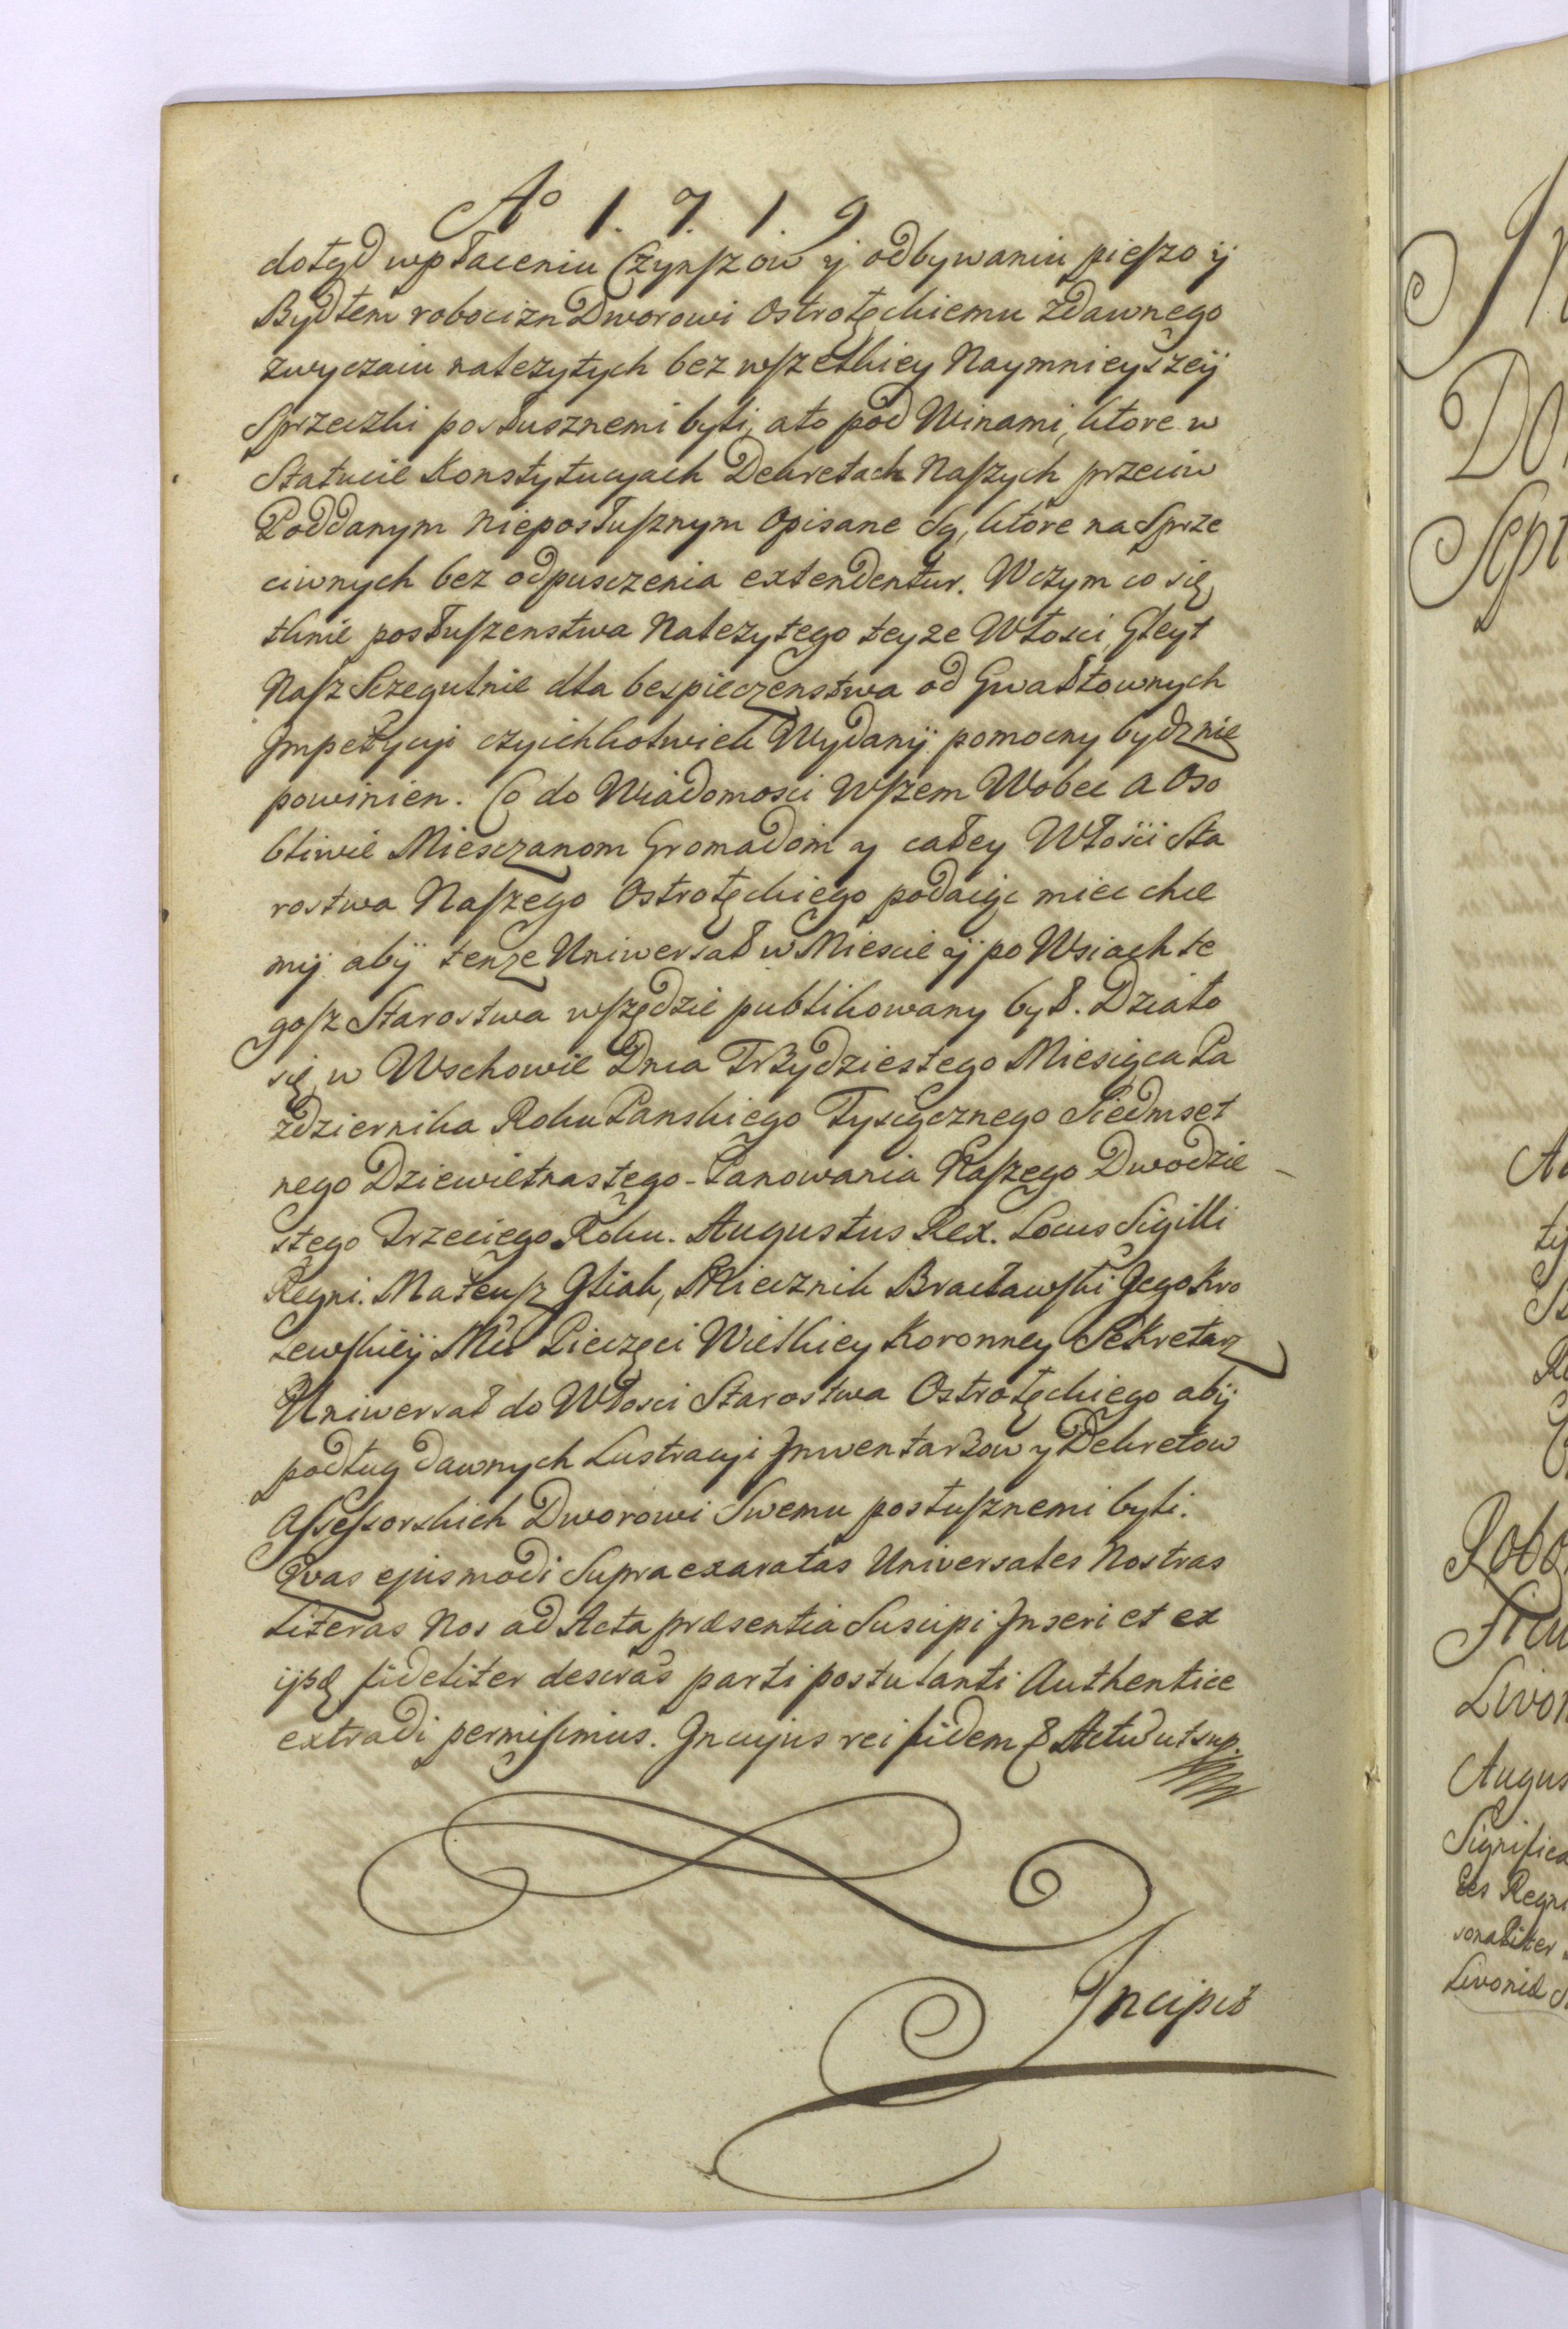 Aº 1. 7. 1. 9
dotąd wpłaceniu Czynſzow y odbywaniu pieſzo ÿ
Bydłem robocizn Dworowi Ostrołęckiemu zdawnego
zwyczaiu należytych bez wſzelkiey Naymnieyszeÿ
Sprzeczki posłusznemi byli, ato pod Winami, ktore w
Statucie Konstytucyach Dekretach Naſzych przeciw
Poddanym nieposłuſznym Opisane Są, ktore na Sprze
ciwnych bez odpusczenia extendentur. Wczym co się
tknie posłuſzenstwa Należytego teyże Włosci, Gleyt
Naſz Sczegulnie dla bespieczenstwa od Gwałtownych
Jmpetycyi czyichkolwiek Wydanÿ pomocny bydznie
powinien. Co do Wiadomosci Wſzem Wobec a Oso
bliwie Miesczanom Gromadom y całey Włości Sta
rostwa Naſzego Ostrołęckiego podaiąc miec chce
mÿ abÿ tenze Uniwersał w Miescie ÿ po Wsiach te
goſz Starostwa wſzędzie publikowany był. Działo
się w Wschowie Dnia Trzydziestego Miesiąca Pa
zdziernika Roku Panskiego Tysiącznego Siedmset
nego Dziewietnastego - Panowania Naſzego Dwodzie
stego Trzeciego Roku. Augustus Rex. Locus Sigilli
Regni. Mateuſz Gliak, Miecznik Bracławſki Jego Kro
lewſkiÿ Mci Pieczęci Wielkiey Koronney Sekretarz
Uniwersał do Włosci Starostwa Ostrołęckiego abÿ
podług dawnych Lustracyi Jnwentarzow y Dekretow
Aſseſsorskich Dworowi Swemu posłuſznemi byli.
Qvas ejusmodi Supraexaratas Universales Nostras
Literas Nos ad Acta præsentia Suscipi Jnseri et ex
fideliter parti postulanti Authentice
extradi permiſimus. Jn cujus rei fidem & ut sup.
Jncipit